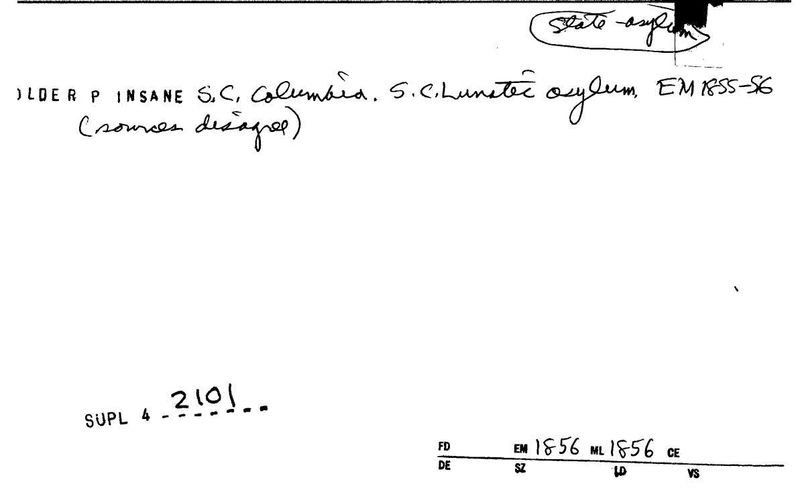 State asylum
OLDER P INSANE S.C, Columbia. S.C. Lunatic asylum, EM 1855-56
(sources disagree)
SUPL 4 2101
FD EM 1856 ML 1856 CE
DE SZ LD VS